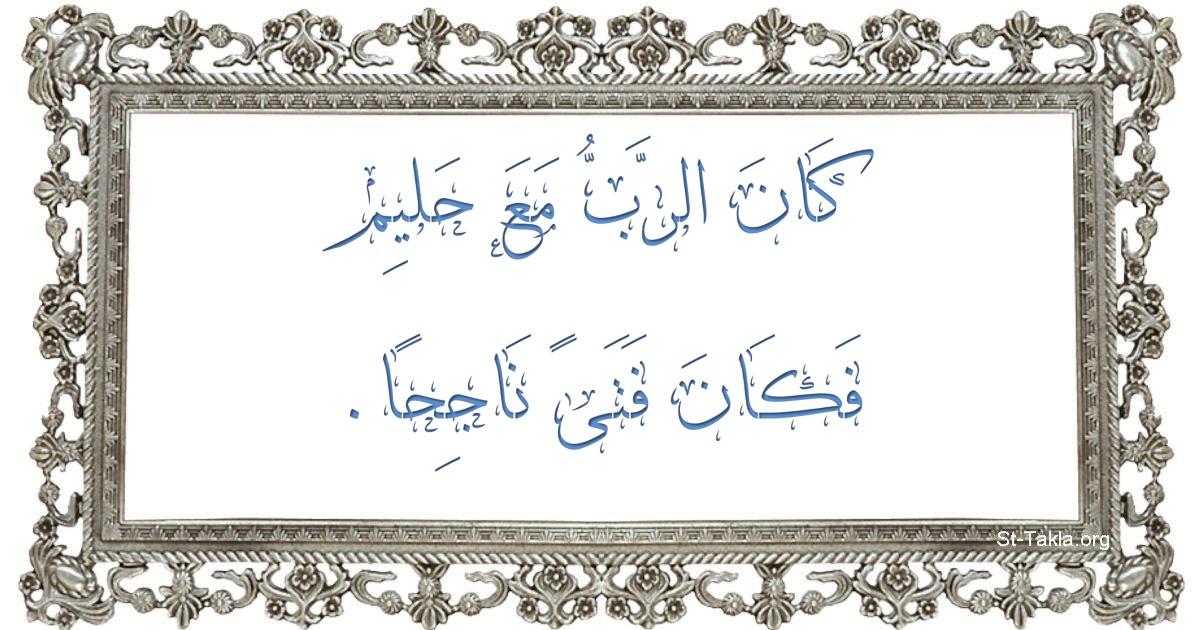 كَانَ الرَّبُّ مَعَ حَلِيمِ
فَكَانَ فَتَىً نَاجِحًا .
St-Takla.org